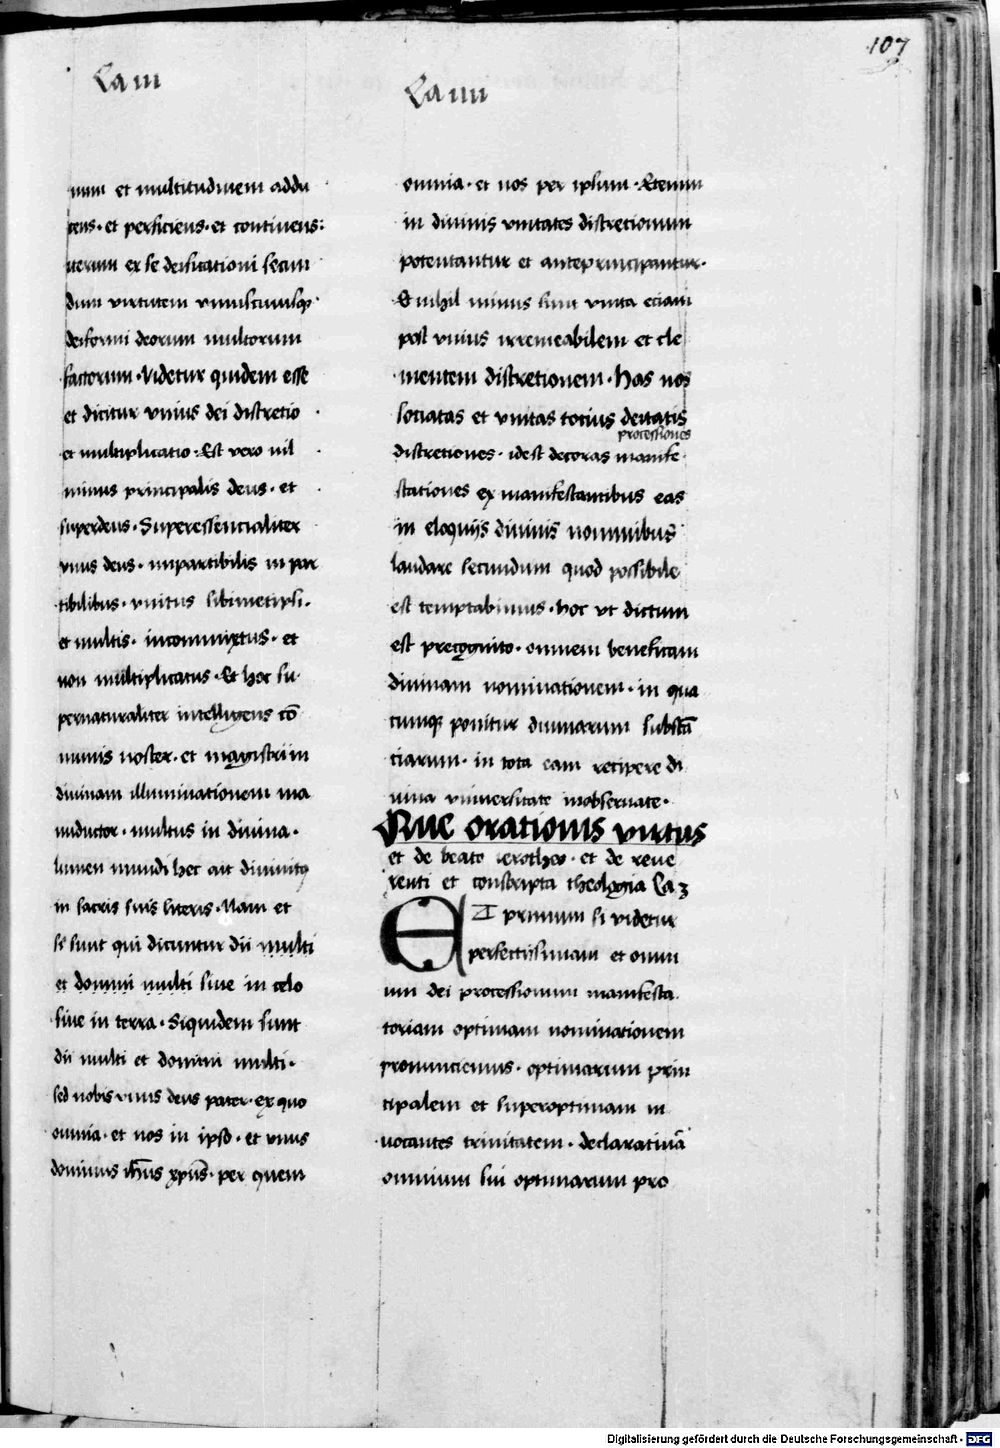 107
Ca III
num et multitudinem addu
cens. et perficiens. et continens:
iterum ex se deificationi secun
dum virtutem vniuscuiusqꝫ
deiformi deorum multorum
factorum. Videtur quidem esse
et dicitur vnius dei discretio
et multiplicatio. Est vero nil
minus principalis deus. et
superdeus. Superessencialiter
vnus deus. impartibilis in par
tibilibus. vnitus sibimetipsi.
et multis. incommixtus. et
non multiplicatus. Et hoc su
pernaturaliter intelligens cō
munis noster. et magistri in
diuinam illuminationem ma
nuductor. multus in diuina.
lumen mundi hec ait diuinitꝰ
in sacris suis literis. Nam et
si sunt qui dicuntur dii multi
et domini multi siue in celo
siue in terra. Siquidem sunt
dii multi et domini multi.
sed nobis vnus deus pater. ex quo
omnia. et nos in ipso. et vnus
dominus ih̄us xp̄us. per quem
Ca IIII
omnia. et nos per ipsum. Etenim
in diuinis vnitates discretionum
potentantur et anteprincipantur.
Et nihil minus sunt vnita eciam
post vnius irremeabilem et cle
mentem discretionem. Has nos
sociatas et vnitas totius deitatis
processiones
discretiones. idest decoras manife
stationes ex manifestantibus eas
in eloquiis diuinis nominibus
laudare secundum quod possibile
est temptabimus. hoc vt dictum
est precognito. omnem beneficam
diuinam nominationem. in qua
cumqꝫ ponitur diuinarum substā
tiarum. in tota eam recipere di
uina vniuersitate inobseruate.
Que orationis virtus
et de beato ierotheo. et de reue
renti et conscripta theologia Ca 3
ET primum si videtur
perfectissimam et omni
um dei processionum manifesta
toriam optimam nominationem
pronunciemus. optimarum prin
cipalem et superoptimam in
uocantes trinitatem. declaratiuā
omnium sui optimarum pro
Digitalisierung gefördert durch die Deutsche Forschungsgemeinschaft - DFG